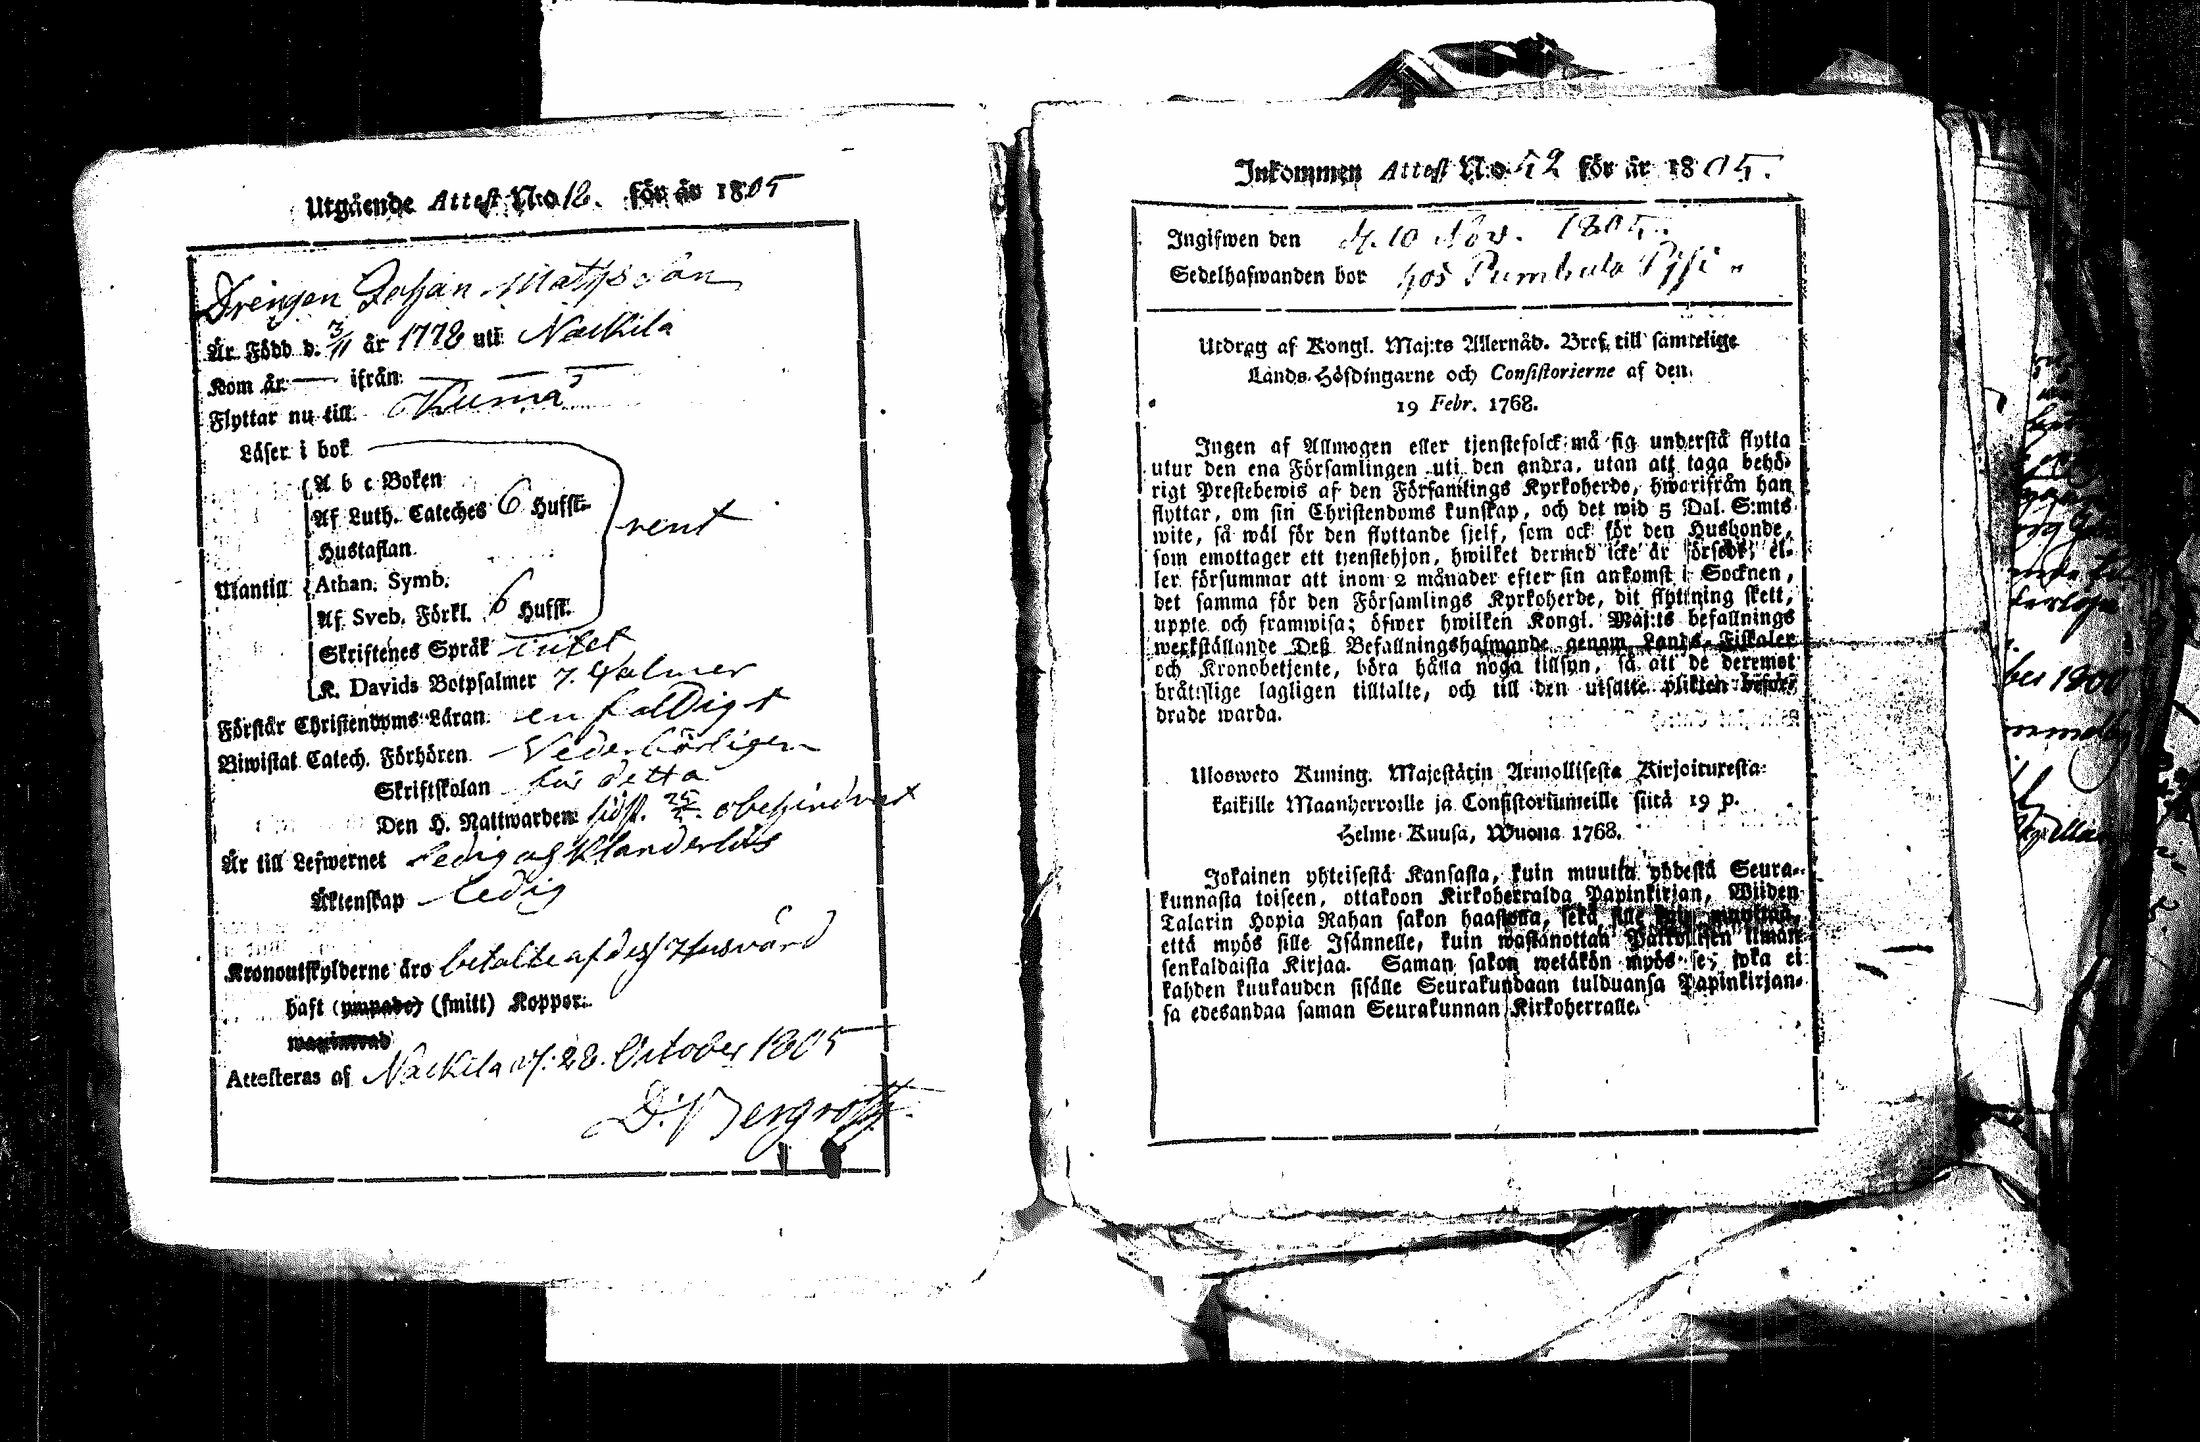 Utgående Attest N:o 12. för år 1805
Drengen Johan Mathsson
Är Född d. 3/11 år 1778 uti Nackila
Kom år — ifrån — — —
Flyttar nu till Kumå
Läser i bok
A b c Boken
Af Luth. Cateches 6 Hufst.
rent
Hustaflan
Utantill Athan. Symb.
Af Sveb. Förkl. 6 Hufst.
Skriftenes Språk intet
K. Davids Botpsalmer 7. Psalmer
Förstår Christendoms Läran enfaldigt
Biwistat Catech. Förhören Vederbörligen
Skriftskolan för detta
Den H. Nattwarden sidst. obehindrat
Är till Lefwernet ledig och klanderlös
Äktenskap ledig
Kronoutskylderne äro betalte af dess Husvård
haft (ympade) (smitt) Koppor.
Attesteras af Nackila d. 28. October 1805
D. Bergroth.
Inkommen Attest N:o 52 för år 1805.
Ingifwen den d. 10 Nov. 1805.
Sedelhafwanden bor hos Pumbula
Utdrag af Kongl. Maj:ts Allernåd. Bref till samtelige
Lands-Höfdingarne och Consistorierne af den
19 Febr. 1768.
Ingen af Allmogen eller tjenstefolck må sig understå flytta
utur den ena Församlingen uti den andra, utan att taga behö-
rigt Prestebewis af den Församlings Kyrkoherde, hwarifrån han
flyttar, om sin Christendoms kunskap, och det wid 5 Dal. S:mts
wite, så wäl för den flyttande sjelf, som ock för den Husbonde,
som emottager ett tjenstehjon, hwilket dermed icke är försedt, el-
ler försummar att inom 2 månader efter sin ankomst i Socknen,
det samma för den Församlings Kyrkoherde, dit flyttning skett,
uppte och framwisa; öfwer hwilken Kongl. Maj:ts befallnings
werkställande Deß Befallningshafwande genom Lands-Fiskaler
och Kronobetjente, böra hålla noga tillsyn, så att de deremot
bråttslige lagligen tilltalte, och till den utsatte plikten beford-
drade warda.
Ulosweto Kuning. Majestätin Armollisesta Kirjoituxesta
kaikille Maanherroille ja Consistoriumeille siitä 19 p.
Helme-Kuusa, Wuona 1768.
Jokainen yhteisestä Kansasta, kuin muutta yhdestä Seura-
kunnasta toiseen, ottakoon Kirkoherralda Papinkirjan, Wiiden
Talarin Hopia Rahan sakon haastolla, sekä sille kuin muuttaa,
että myös sille Isännelle, kuin wastanottaa Palkollisen ilman
senkaldaista Kirjaa. Saman sakon wetäkön myös se, joka ei
kahden kuukauden sisälle Seurakundaan tulduansa Papinkirjan-
sa edesandaa saman Seurakunnan Kirkoherralle.